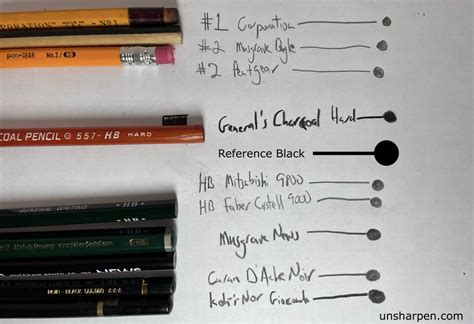 #1 Corporation
#2 Musgrave Bugle
pen+GEAR No.2/HB
#2 Pentgear
General's Charcoal Hard
COAL PENCIL 557-HB HARD
Reference Black
HB Mitsubishi 9800
HB
GENERAL WRITING
HB Faber Castell 9000
Musgrave News
NEWS
Caran D'Ache Noir
Koh-i-Nor Gioconda
unsharpen.com